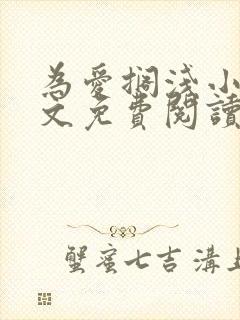 為愛搁淺小
文免費閱讀
蟹蜜七吉溝